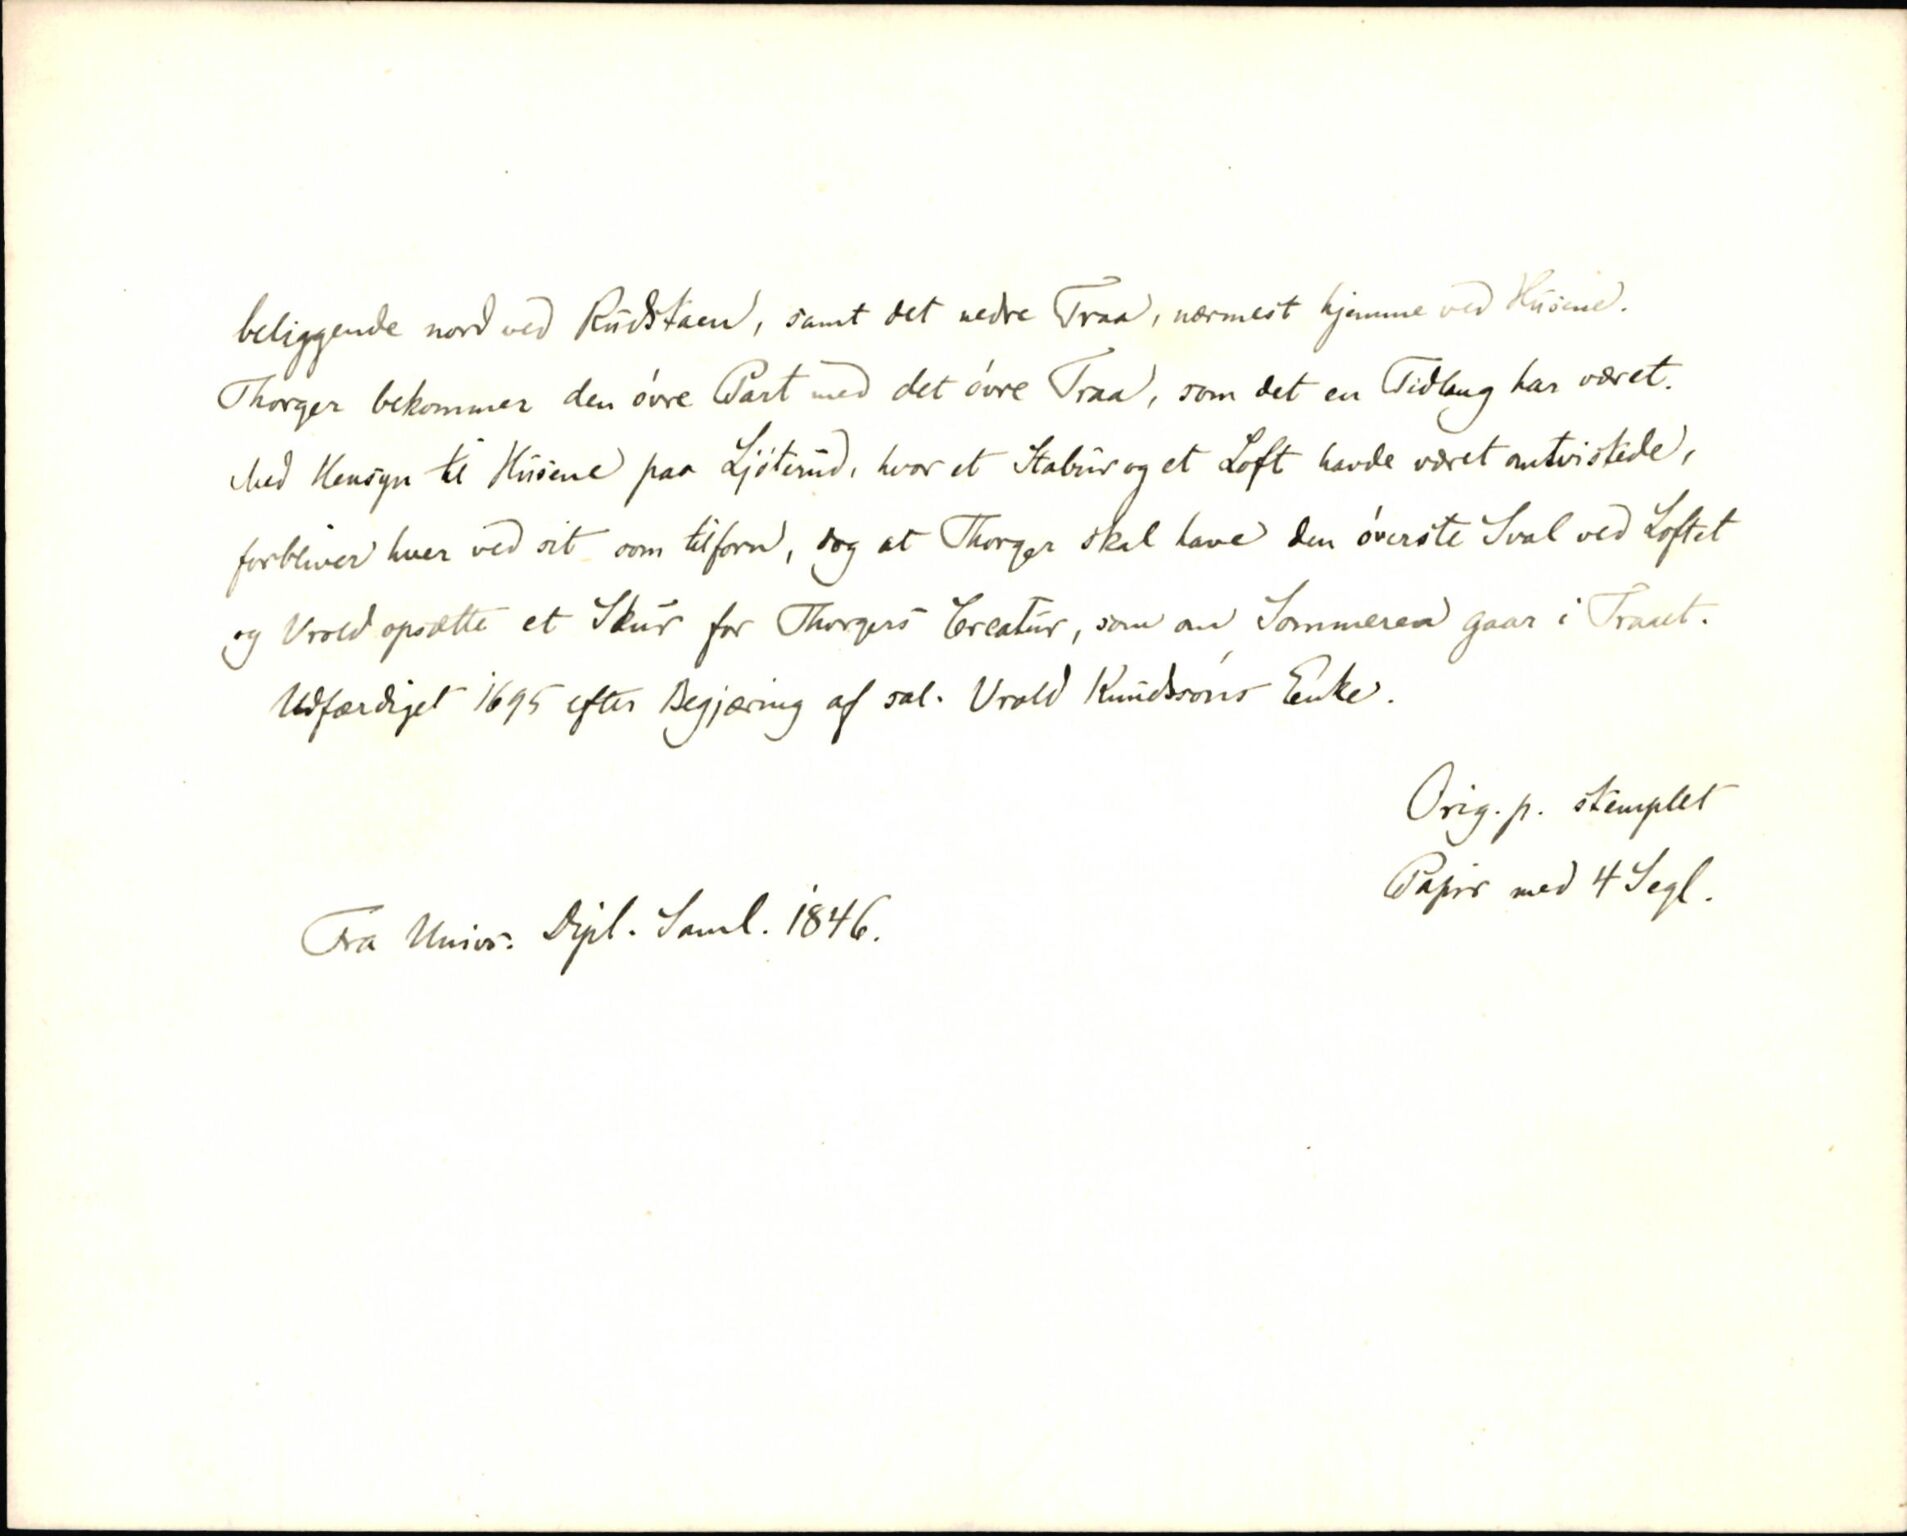 beliggende nord ved Rudskaen, samt det nedre Traa, nærmest hjemme ved Husene.
Thorger bekommer den óvre Part med det óvre Traa, som det en Tidlang har været.
Med Hensyn til Husene paa Ljóterud, hvor et Stabur og et Loft havde været omtvistede,
forbliver hver ved sit som tilforn, dog at Thorger skal have den óverste Sval ved Loftet
og Vrold opsætte et Skur for Thorgers Creatur, som om Sommeren gaar i Traaet.
Udfærdiget 1695 efter Begjæring af sal. Vrold Knudssóns Enke.
Orig. p. stemplet
Papir med 4 Segl.
Fra Univs. Dipl. Saml. 1846.